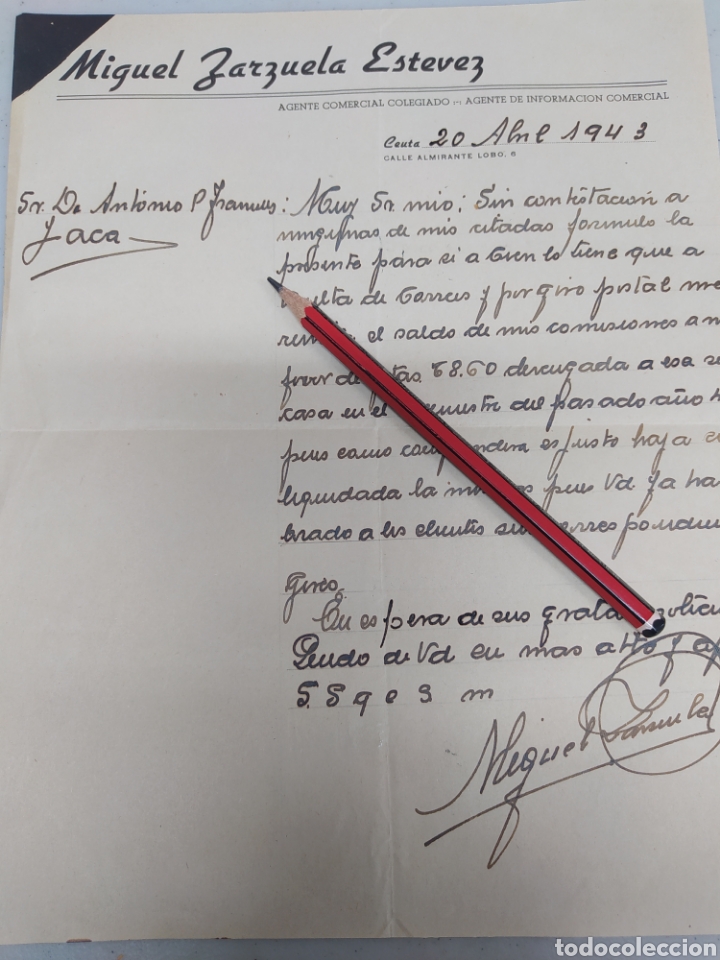 Miguel Zarzuela Estevez
AGENTE COMERCIAL COLEGIADO (-) AGENTE DE INFORMACION COMERCIAL
Ceuta 20 Abril 1943
CALLE ALMIRANTE LOBO, 6
Sr. Dn António P
Jaca
Muy Sr mio; Sin contestación a
ningunas de mis citadas formulo la
presente para si a bien lo tiene que a
vuelta de Correos y por giro postal me
el saldo de mis comisiones a mi
favor de ptas 68.60 a esa su
casa en el del pasado año
pues como es justo haya
liquidada la pues Vd ya ha
brado a los clientes sus
Giros
En espera de sus gratas noticias
Quedo de Vd en mas atto y
S. S q e s m
Miguel Zarzuela
todocoleccion